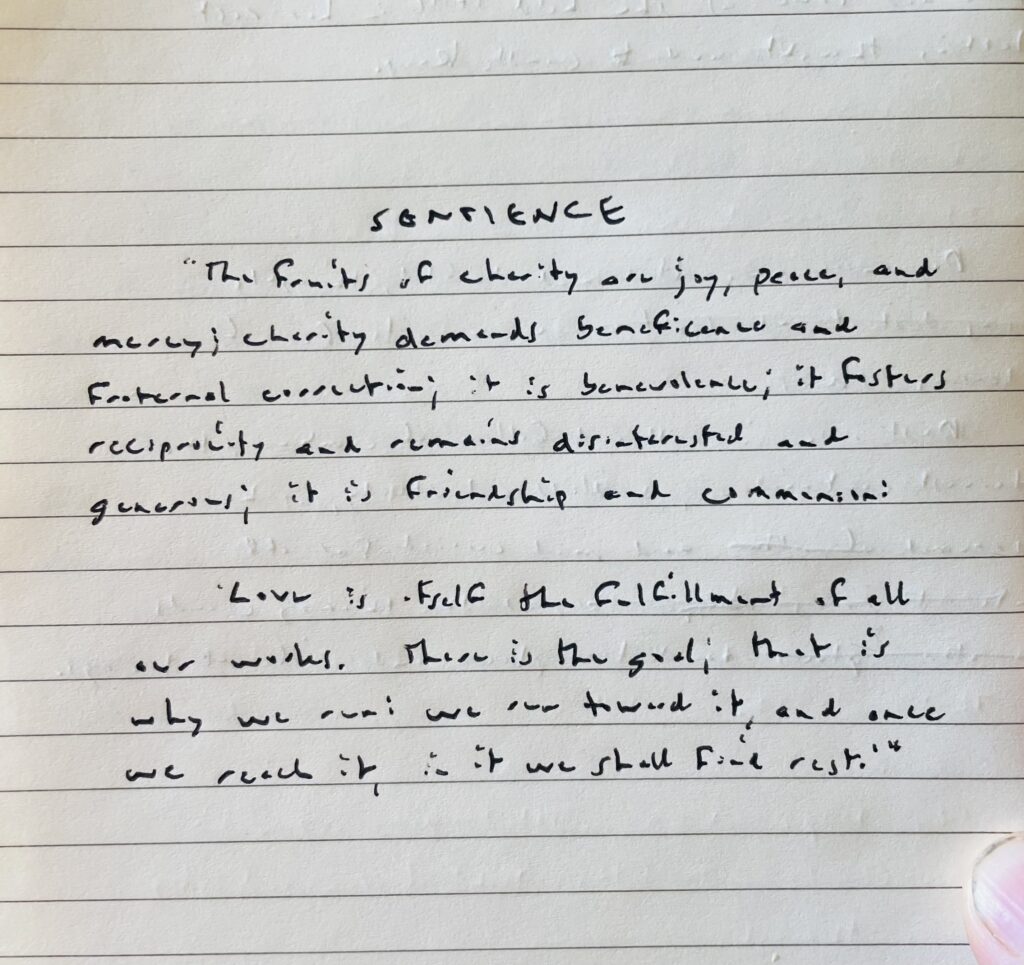 SENTIENCE
"The fruits of charity are joy, peace, and
mercy; charity demands beneficence and
fraternal correction; it is benevolence; it fosters
reciprocity and remains disinterested and
generous; it is friendship and communion:
'Love is itself the fulfillment of all
our works. There is the goal; that is
why we run: we run toward it, and once
we reach it, in it we shall find rest.'"